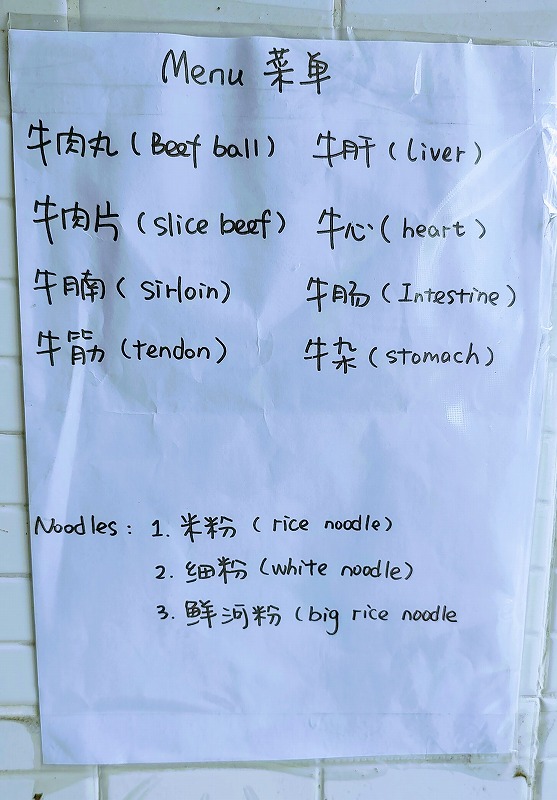 Menu 菜单
牛肉丸 (Beef ball) 牛肝 (liver)
牛肉片 (slice beef) 牛心 (heart)
牛腩 (sirloin) 牛肠 (Intestine)
牛筋 (tendon) 牛杂 (stomach)
Noodles: 1. 米粉 (rice noodle)
2. 细粉 (white noodle)
3. 鲜河粉 (big rice noodle